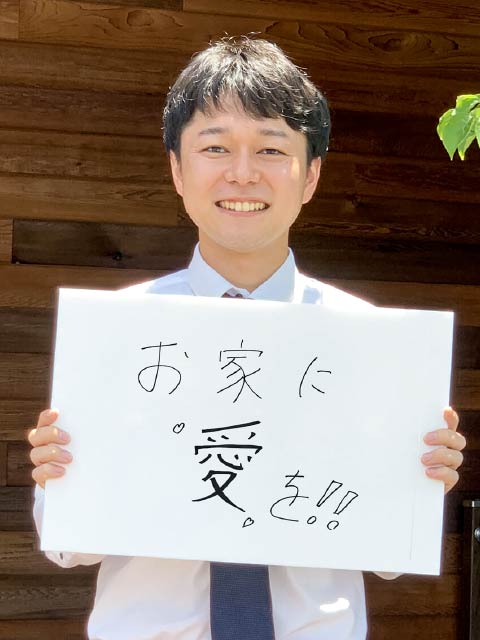 お家に
愛を!!